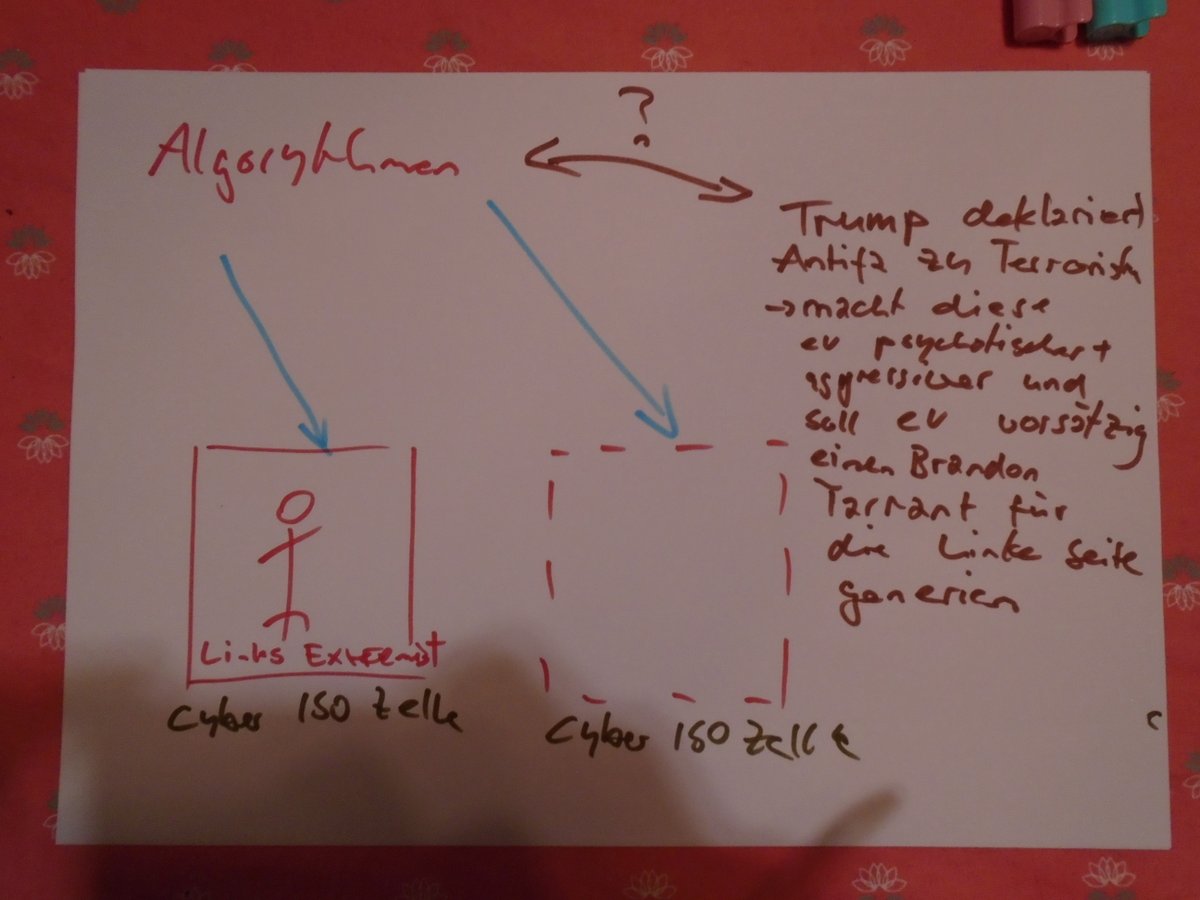 Algorythmen
?
Trump deklariert
Antifa zu Terroristn
→ macht diese
ev psychotischer +
aggressiver und
soll ev vorsätzig
einen Brandon
Tarrant für
die Linke Seite
generieren
Links Extremist
Cyber ISO Zelle
Cyber ISO Zelle